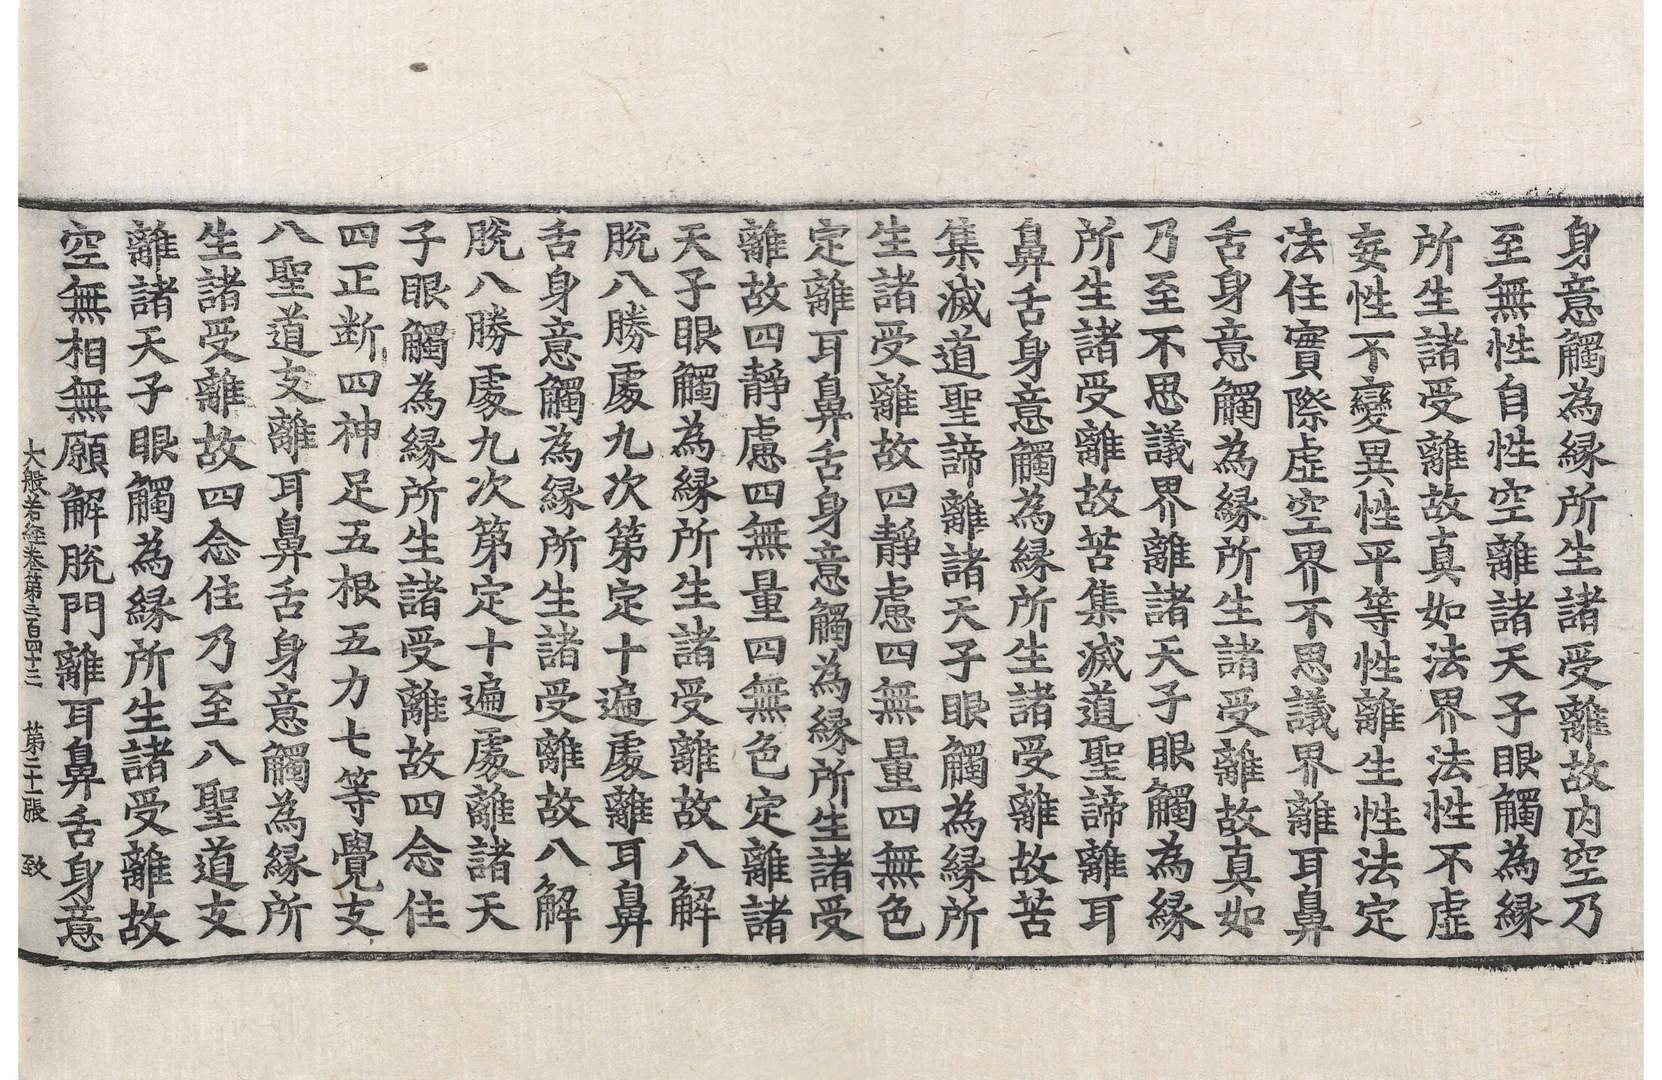 身意觸為緣所生諸受離故內空乃
至無性自性空離諸天子眼觸為緣
所生諸受離故真如法界法性不虛
妄性不變異性平等性離生性法定
法住實際虛空界不思議界離耳鼻
舌身意觸為緣所生諸受離故真如
乃至不思議界離諸天子眼觸為緣
所生諸受離故苦集滅道聖諦離耳
鼻舌身意觸為緣所生諸受離故苦
集滅道聖諦離諸天子眼觸為緣所
生諸受離故四靜慮四無量四無色
定離耳鼻舌身意觸為緣所生諸受
離故四靜慮四無量四無色定離諸
天子眼觸為緣所生諸受離故八解
脫八勝處九次第定十遍處離耳鼻
舌身意觸為緣所生諸受離故八解
脫八勝處九次第定十遍處離諸天
子眼觸為緣所生諸受離故四念住
四正斷四神足五根五力七等覺支
八聖道支離耳鼻舌身意觸為緣所
生諸受離故四念住乃至八聖道支
離諸天子眼觸為緣所生諸受離故
空無相無願解脫門離耳鼻舌身意
大般若經卷第三百四十三 第二十一張 致